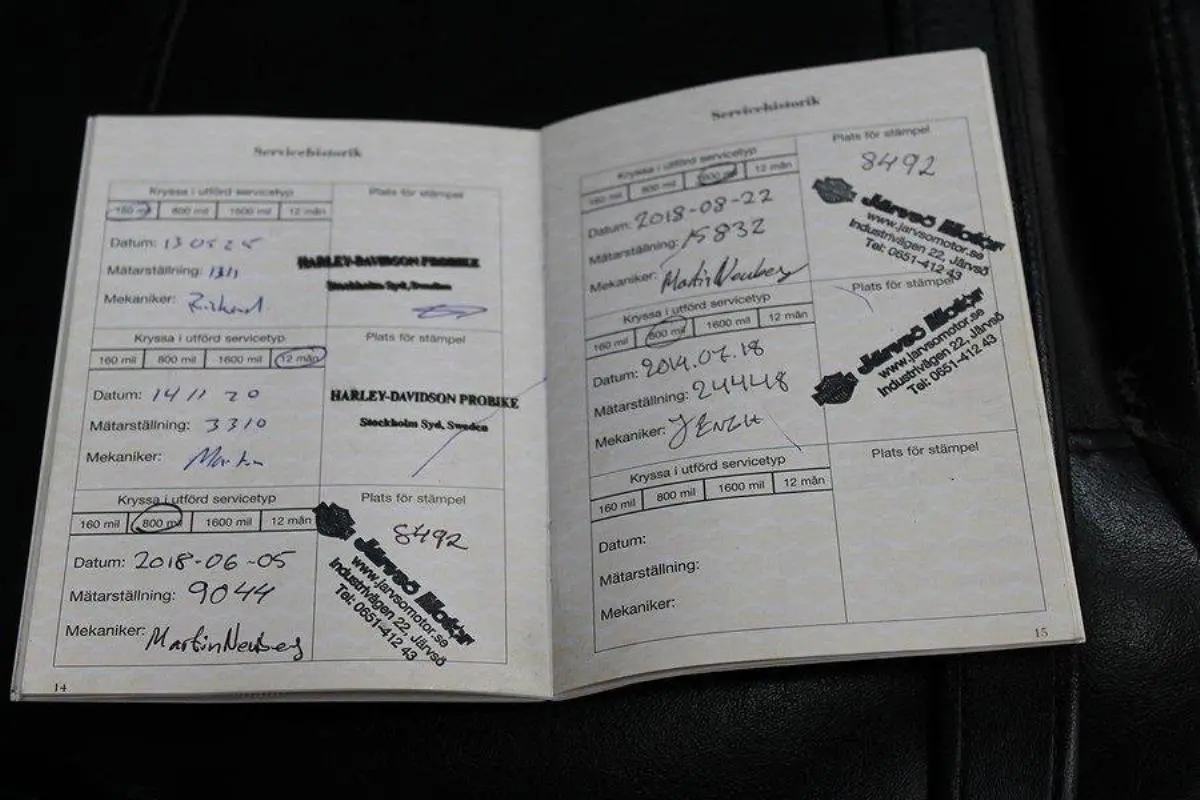 Servicehistorik
Kryssa i utförd servicetyp
160 mil 800 mil 1600 mil 12 mån
Datum: 130525
Mätarställning: 1311
Mekaniker: Rickard
Plats för stämpel
HARLEY-DAVIDSON PROBIKE
Stockholm Syd, Sweden
Kryssa i utförd servicetyp
160 mil 800 mil 1600 mil 12 mån
Datum: 14 11 20
Mätarställning: 3310
Mekaniker: Martin
Plats för stämpel
HARLEY-DAVIDSON PROBIKE
Stockholm Syd, Sweden
Kryssa i utförd servicetyp
160 mil 800 mil 1600 mil 12 mån
Datum: 2018-06-05
Mätarställning: 9044
Mekaniker: Martin Neuberg
Plats för stämpel
8492
Järvsö Motor
www.jarvsomotor.se
Industrivägen 22, Järvsö
Tel: 0651-412 43
14
Servicehistorik
Kryssa i utförd servicetyp
160 mil 800 mil 1600 mil 12 mån
Datum: 2018-08-22
Mätarställning: 15832
Mekaniker: Martin Neuberg
Plats för stämpel
8492
Järvsö Motor
www.jarvsomotor.se
Industrivägen 22, Järvsö
Tel: 0651-412 43
Kryssa i utförd servicetyp
160 mil 800 mil 1600 mil 12 mån
Datum: 2019.07.18
Mätarställning: 24448
Mekaniker:
Plats för stämpel
Järvsö Motor
www.jarvsomotor.se
Industrivägen 22, Järvsö
Tel: 0651-412 43
Kryssa i utförd servicetyp
160 mil 800 mil 1600 mil 12 mån
Datum:
Mätarställning:
Mekaniker:
Plats för stämpel
15